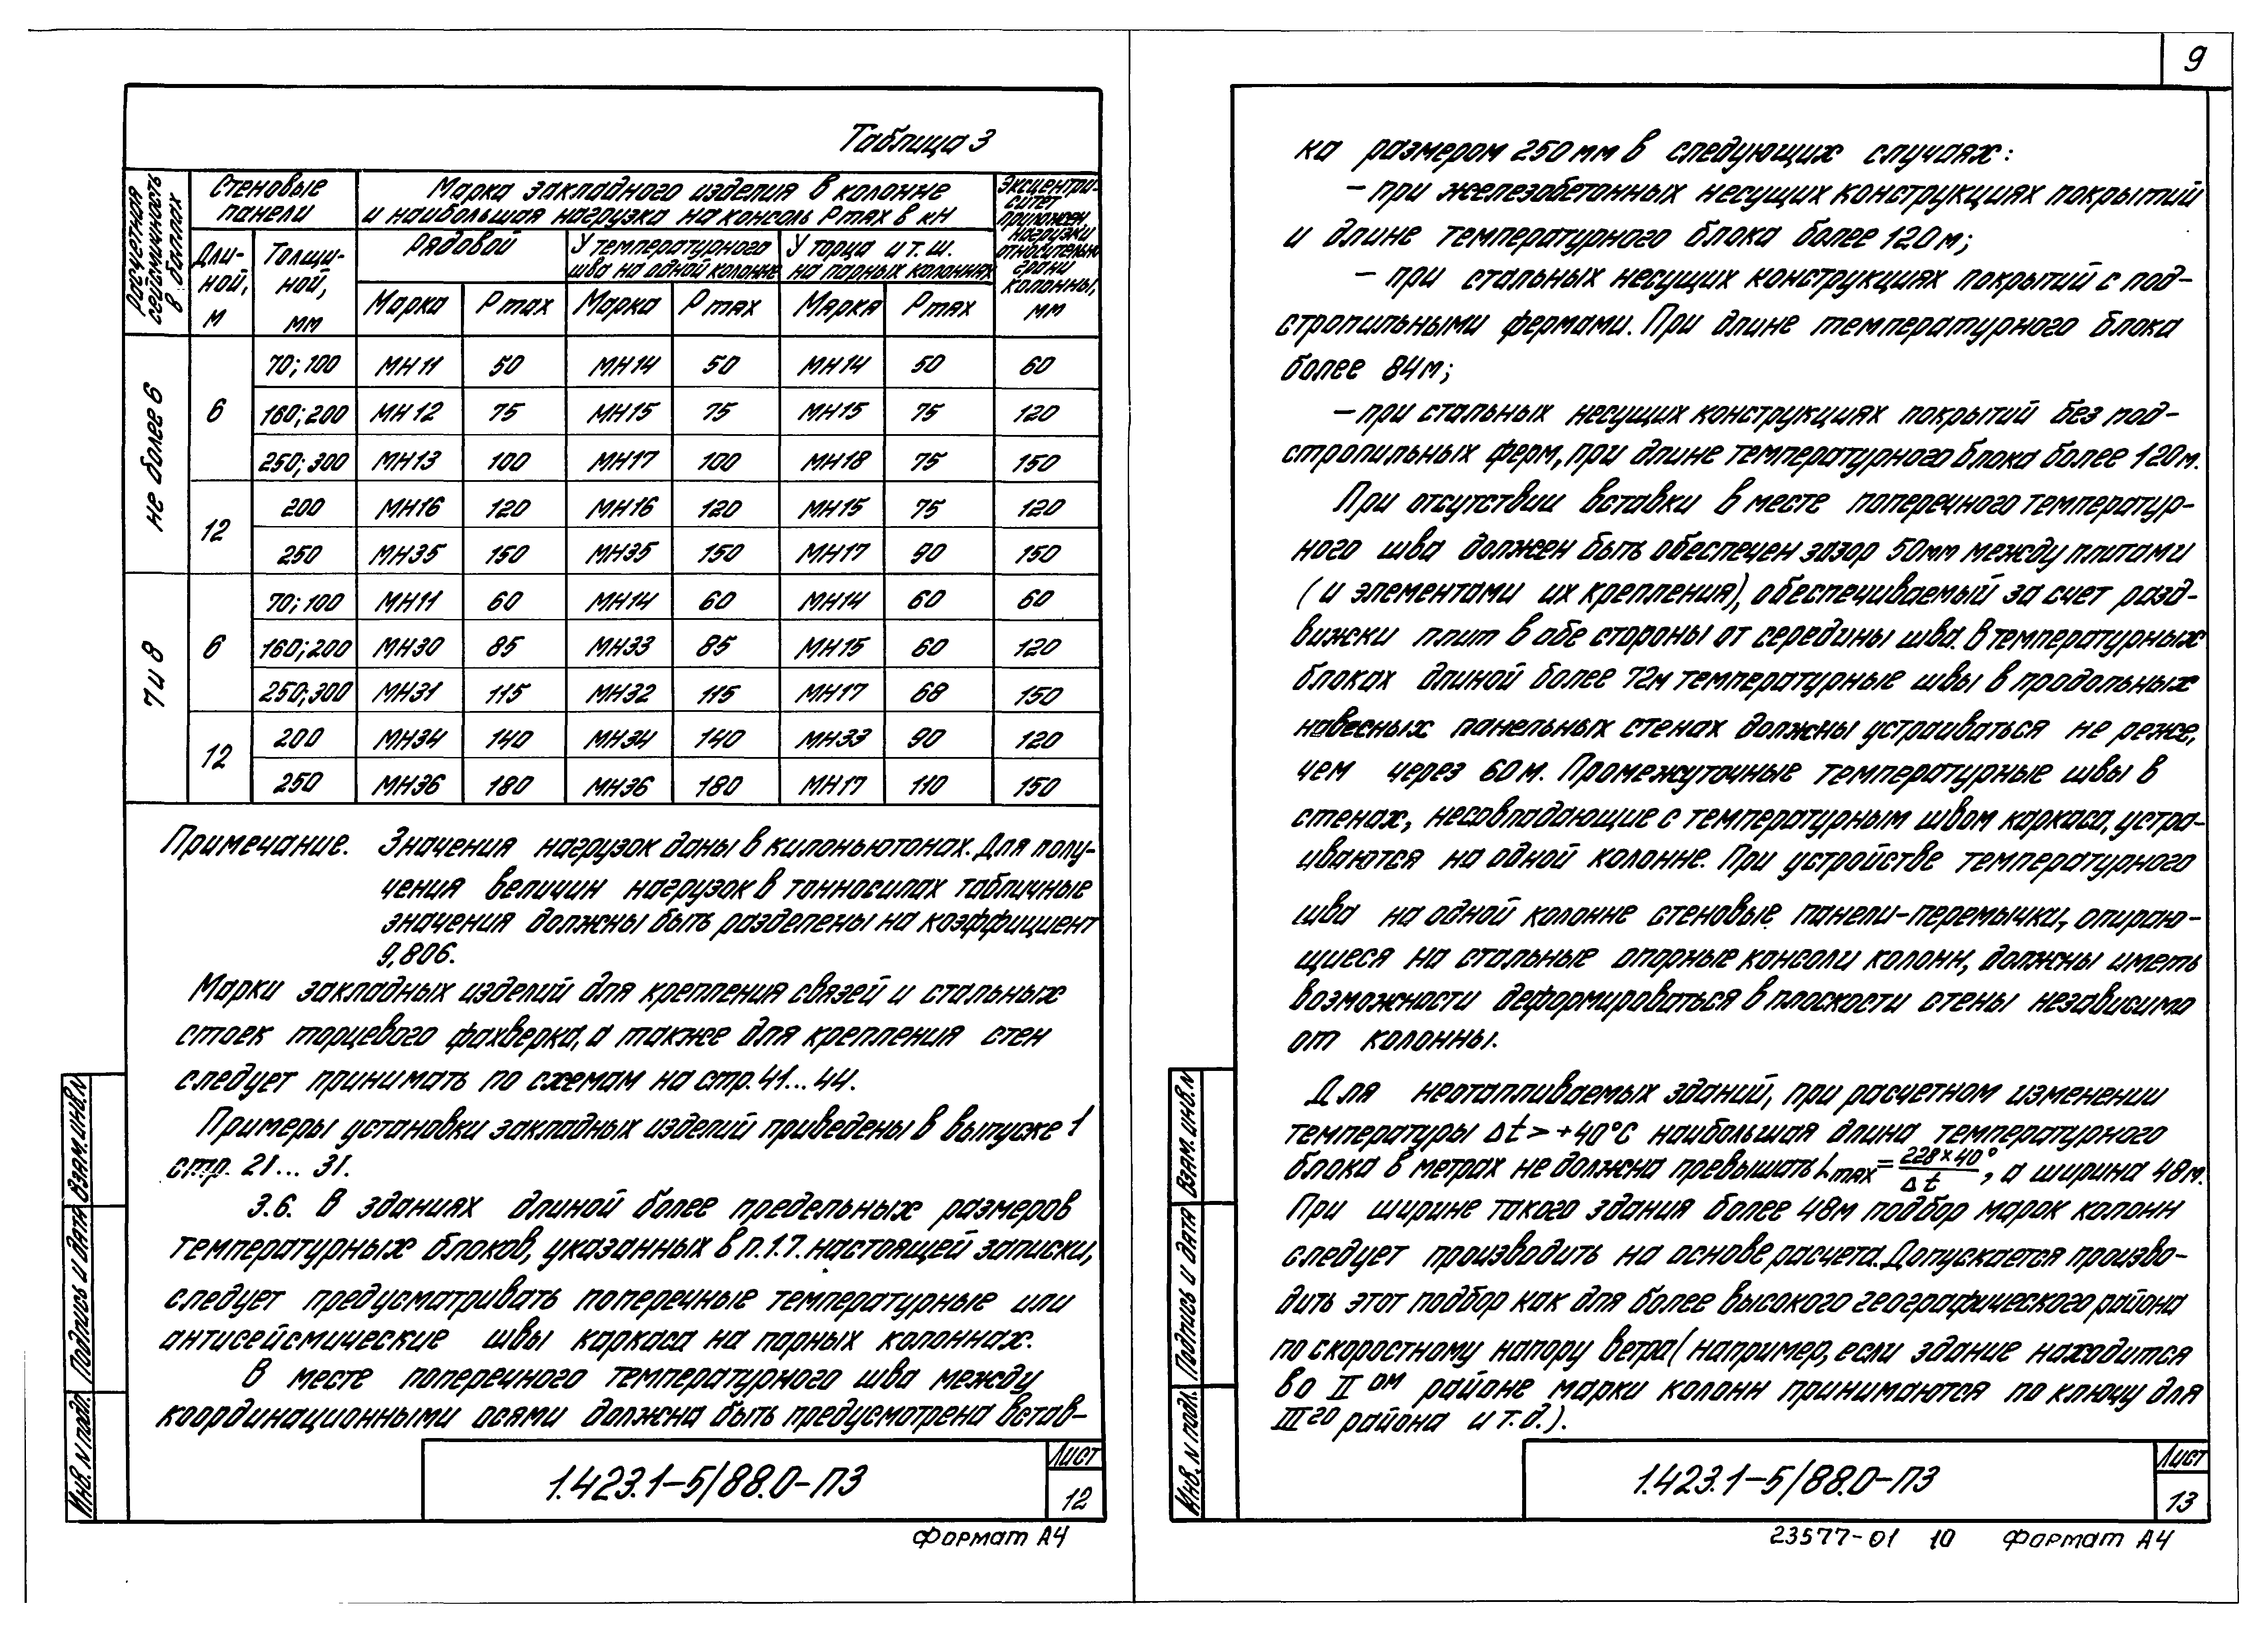 9
Таблица 3
Расчетная сейсмичность в баллах
Стеновые панели
Марка закладного изделия в колонне и наибольшая нагрузка на консоль Pmax в кН
Эксцентриситет приложен. нагрузки относительно грани колонны, мм
Длиной, м
Толщиной, мм
Рядовой
У температурного шва на одной колонне
У торца и т.ш. на парных колоннах
Марка Pmax Марка Pmax Марка Pmax
не более 6
6
70; 100 МН11 50 МН14 50 МН14 50 60
160; 200 МН12 75 МН15 75 МН15 75 120
250; 300 МН13 100 МН17 100 МН18 75 150
12
200 МН16 120 МН16 120 МН15 75 120
250 МН35 150 МН35 150 МН17 90 150
7 и 8
6
70; 100 МН11 60 МН14 60 МН14 60 60
160; 200 МН30 85 МН33 85 МН15 60 120
250; 300 МН31 115 МН32 115 МН17 68 150
12
200 МН34 140 МН34 140 МН33 90 120
250 МН36 180 МН36 180 МН17 110 150
Примечание. Значения нагрузок даны в килоньютонах. Для полу-
чения величин нагрузок в тонносилах табличные
значения должны быть разделены на коэффициент
9,806.
Марки закладных изделий для крепления связей и стальных
стоек торцевого фахверка, а также для крепления стен
следует принимать по схемам на стр. 41... 44.
Примеры установки закладных изделий приведены в выпуске 1
стр. 21... 31.
3.6. В зданиях длиной более предельных размеров
температурных блоков, указанных в п.1.7. настоящей записки,
следует предусматривать поперечные температурные или
антисейсмические швы каркаса на парных колоннах.
В месте поперечного температурного шва между
координационными осями должна быть предусмотрена встав-
Взам. инв. N
Подпись и дата
Инв. N подл.
1.423.1-5/88.0-ПЗ
Лист
12
Формат А4
ка размером 250 мм в следующих случаях:
- при железобетонных несущих конструкциях покрытий
и длине температурного блока более 120 м;
- при стальных несущих конструкциях покрытий с под-
стропильными фермами. При длине температурного блока
более 84 м;
- при стальных несущих конструкциях покрытий без под-
стропильных ферм, при длине температурного блока более 120 м.
При отсутствии вставки в месте поперечного температур-
ного шва должен быть обеспечен зазор 50 мм между плитами
(и элементами их крепления), обеспечиваемый за счет разд-
вижки плит в обе стороны от середины шва. В температурных
блоках длиной более 72 м температурные швы в продольных
навесных панельных стенах должны устраиваться не реже,
чем через 60 м. Промежуточные температурные швы в
стенах, несовпадающие с температурным швом каркаса, устра-
иваются на одной колонне. При устройстве температурного
шва на одной колонне стеновые панели-перемычки, опираю-
щиеся на стальные опорные консоли колонн, должны иметь
возможности деформироваться в плоскости стены независимо
от колонны.
Для неотапливаемых зданий, при расчетном изменении
температуры Δt > +40°С наибольшая длина температурного
блока в метрах не должна превышать Lmax = 228×40°/Δt, а ширина 48 м.
При ширине такого здания более 48 м подбор марок колонн
следует производить на основе расчета. Допускается произво-
дить этот подбор как для более высокого географического района
по скоростному напору ветра (например, если здание находится
во II ом районе марки колонн принимаются по ключу для
III го района и т.д.).
Взам. инв. N
Подпись и дата
Инв. N подл.
1.423.1-5/88.0-ПЗ
Лист
13
23577-01 10 Формат А4